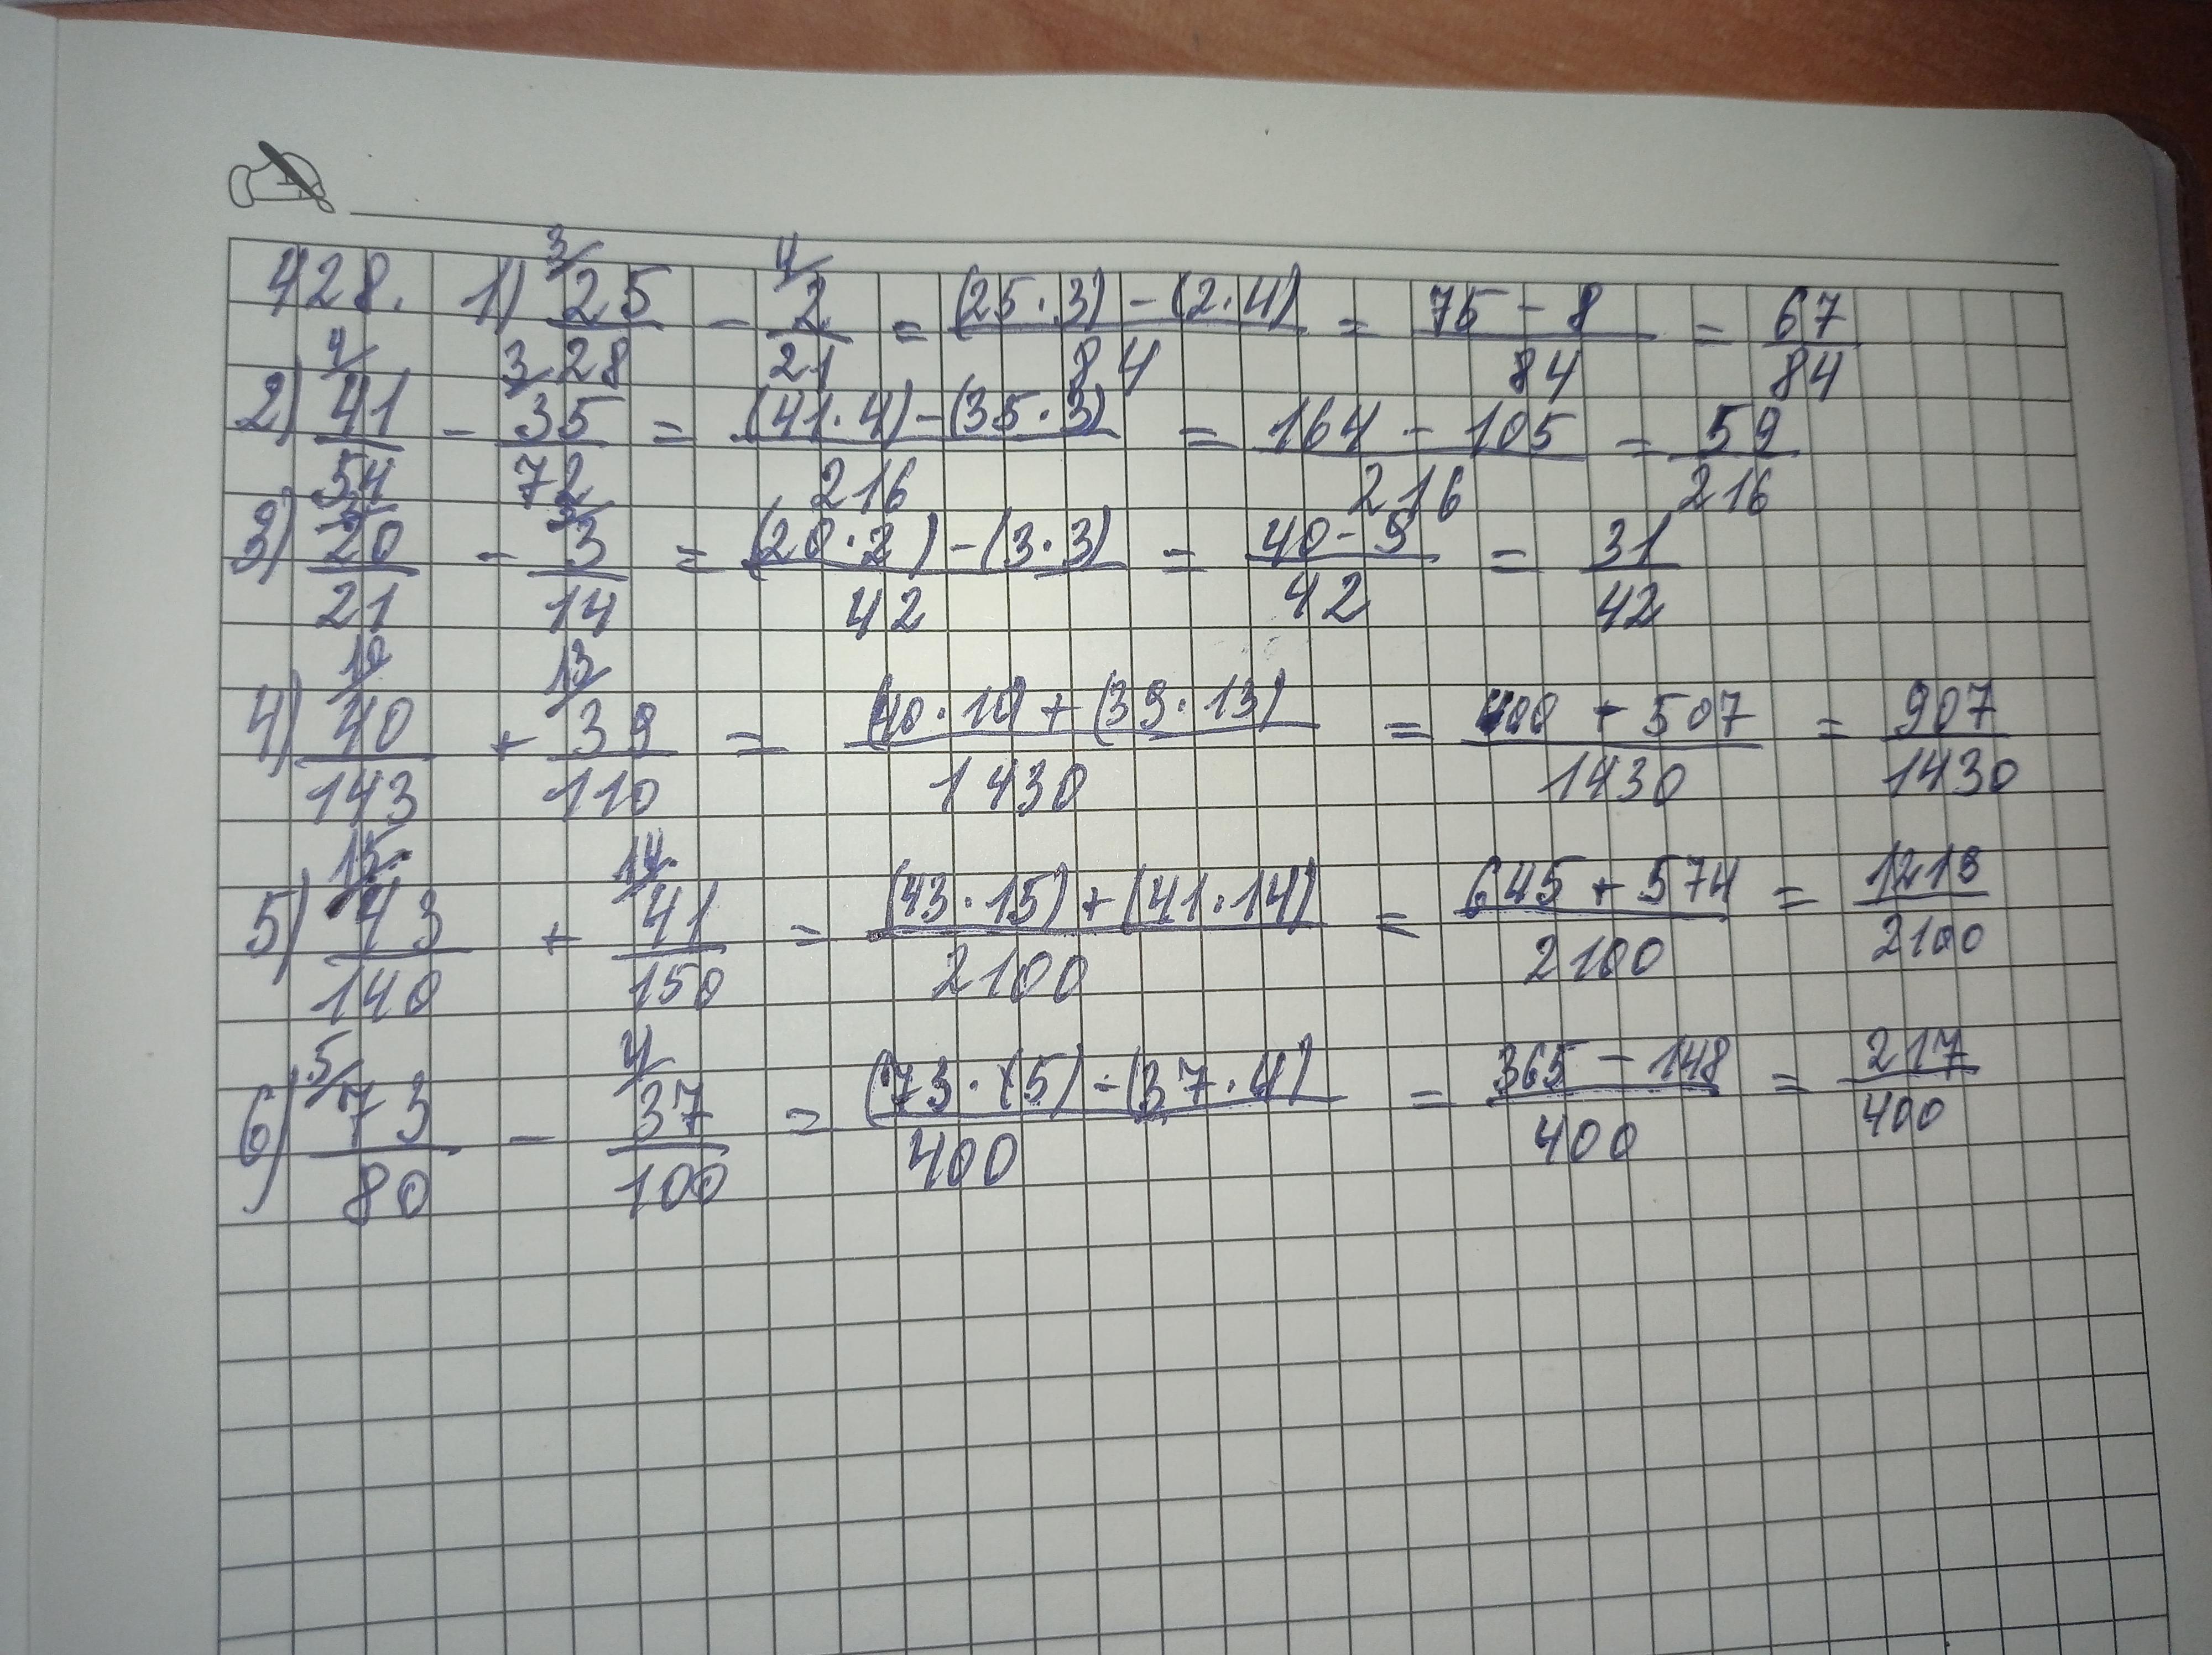 428. 1) 3/ 25/28 - 4/ 2/21 = (25·3)-(2·4)/84 = 75-8/84 = 67/84
2) 4/ 41/54 - 3 35/72 = (41·4)-(35·3)/216 = 164-105/216 = 59/216
3) 20/21 - 3/14 = (20·2)-(3·3)/42 = 40-9/42 = 31/42
4) 10/ 40/143 + 13/ 39/110 = (40·10)+(39·13)/1430 = 400+507/1430 = 907/1430
5) 15/ 43/140 + 14/ 41/150 = (43·15)+(41·14)/2100 = 645+574/2100 = 1219/2100
6) 5/ 73/80 - 4/ 37/100 = (73·(5)-(37·4)/400 = 365-148/400 = 217/400